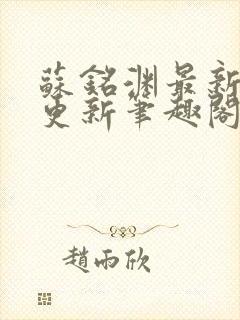 蘇銘淵最新
更新筆趣閣
趙雨欣